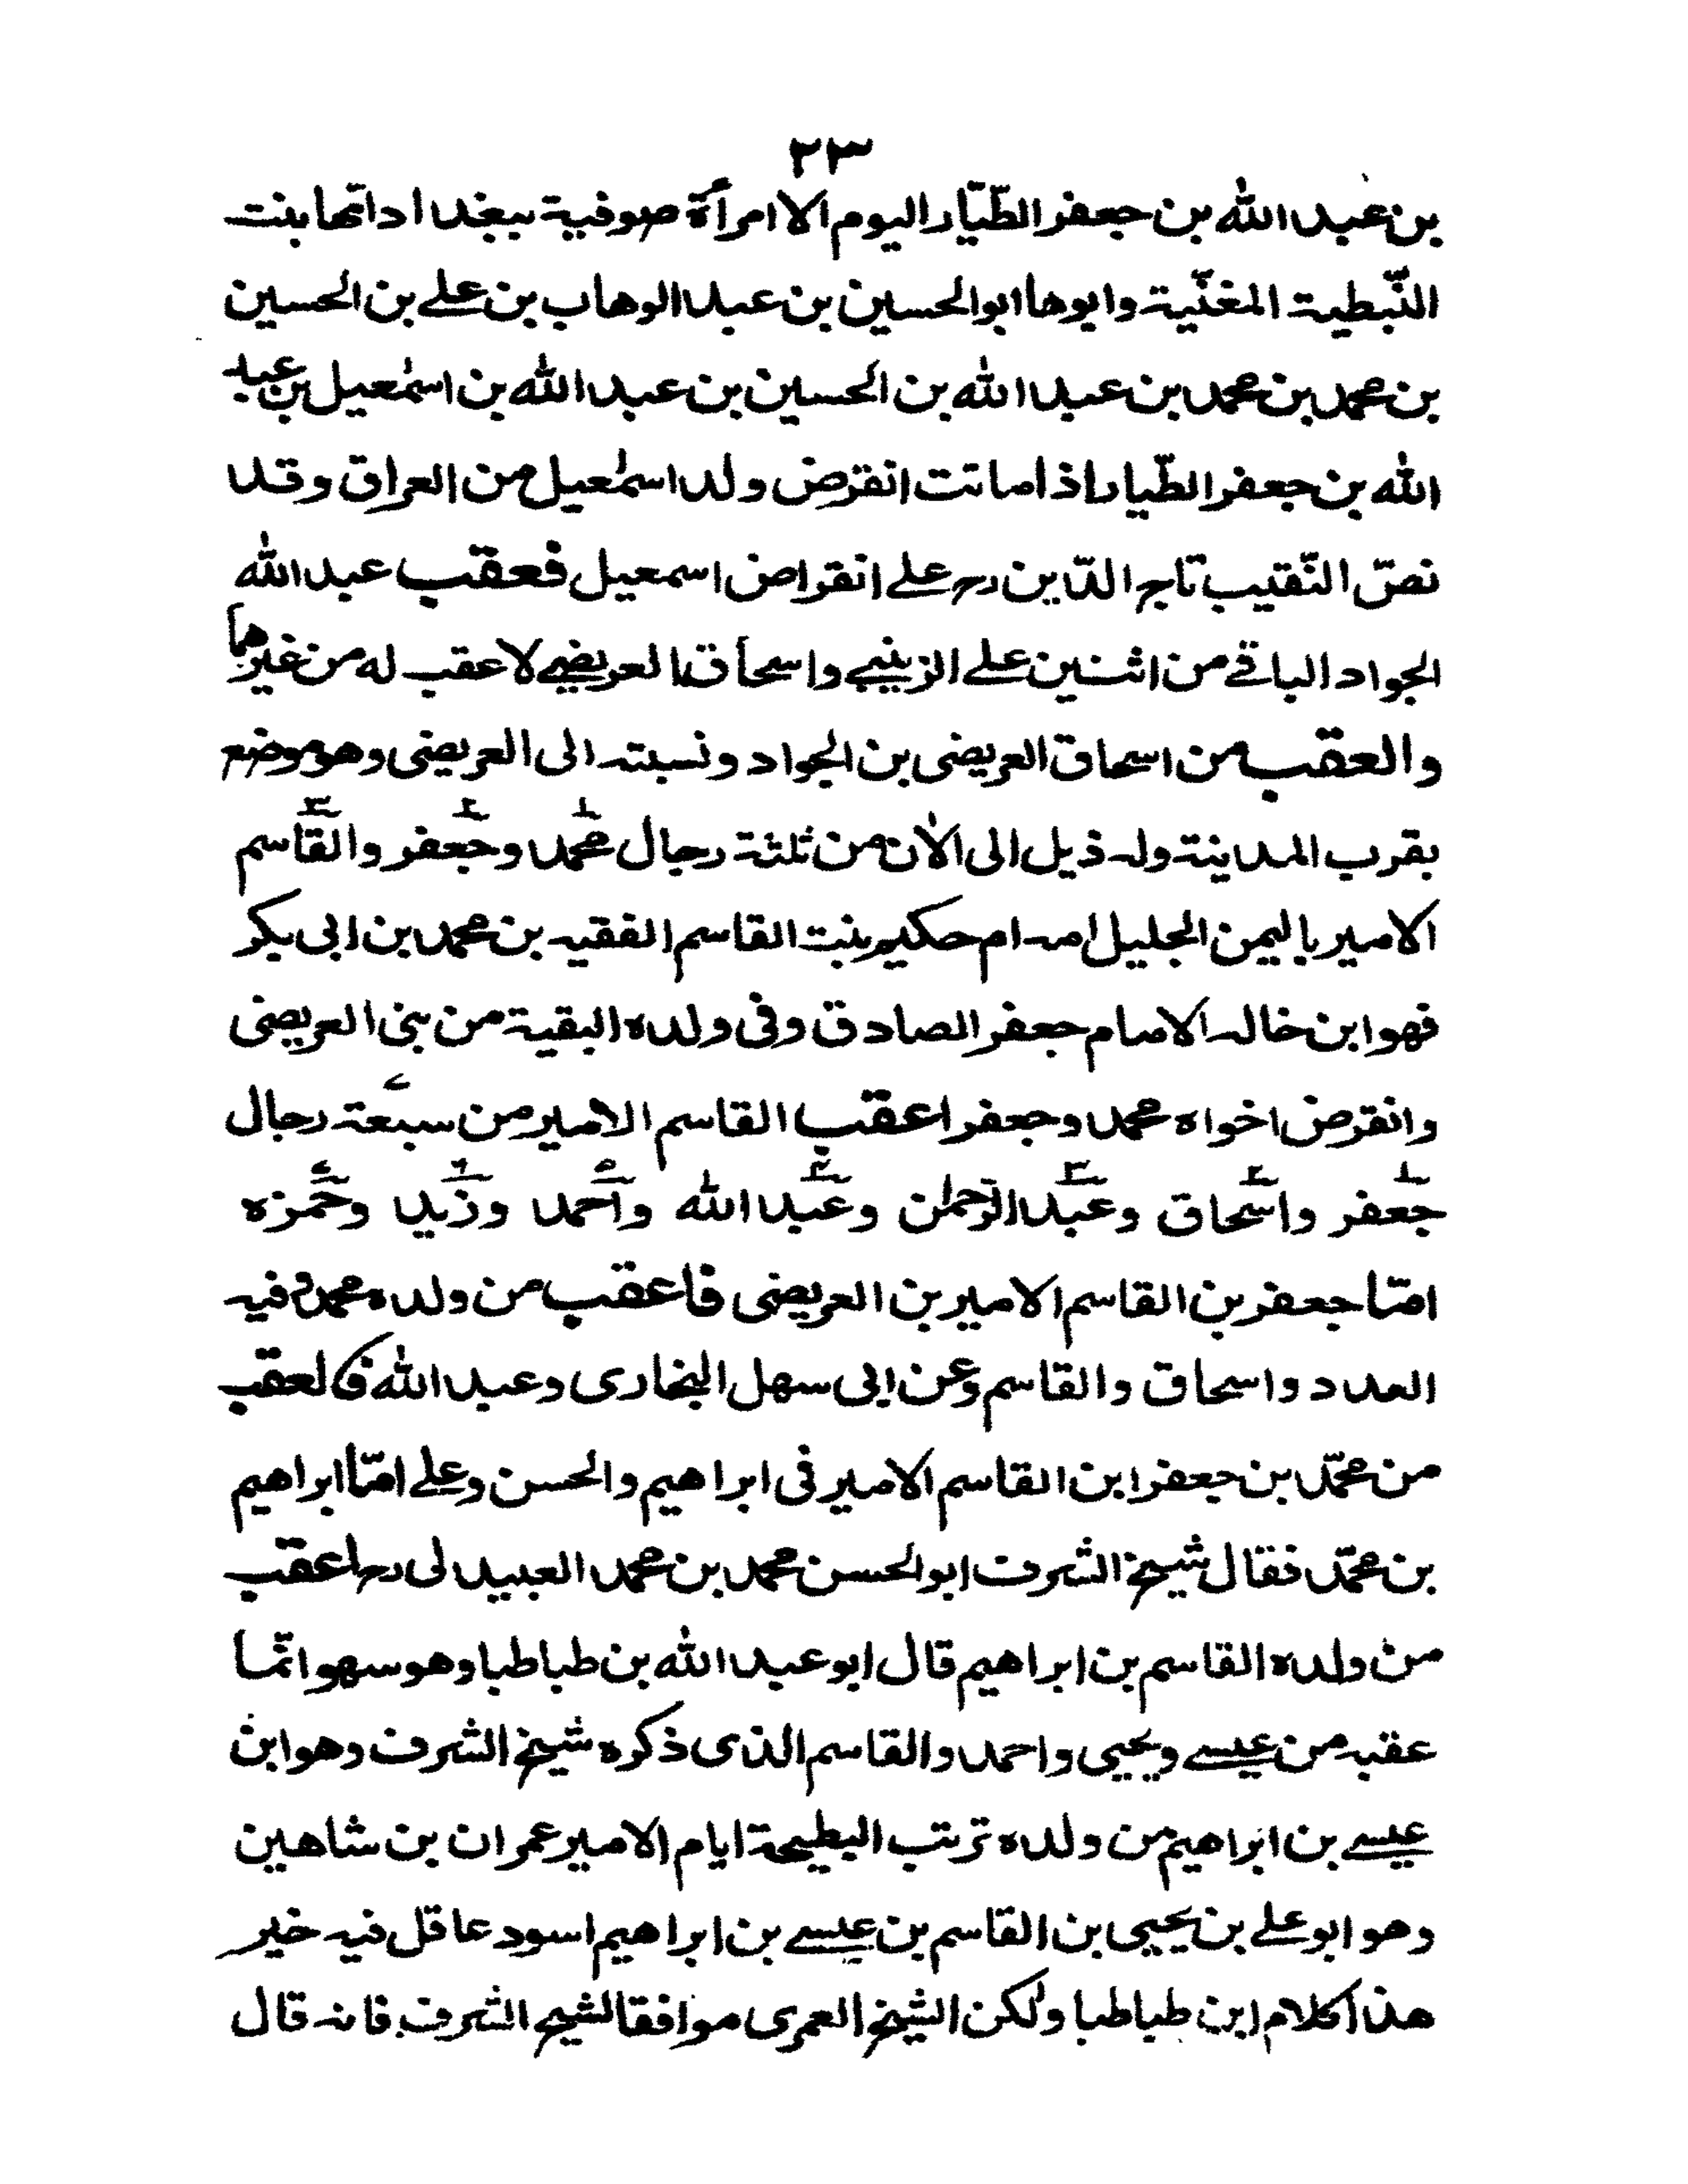 ٢٣
بن عبد الله بن جعفر الطّيّار اليوم الا امرأة صوفية ببغداد اتّها بنت
النّبطية المغنّية وابوها ابو الحسين بن عبد الوهاب بن علے بن الحسين
بن محمد بن محمد بن عبد الله بن الحسين بن عبد الله بن اسمٰعيل بن عبد
الله بن جعفر الطّيار اذا ماتت انقرض ولد اسمٰعيل من العراق وقد
نصّ النّقيب تاج الدّين رح علے انقراض اسمعيل فعقب عبد الله
الجواد الباقے من اثنين علے الزينبے واسحاق العريضے لا عقب له من غيرهما
والعقب من اسحاق العريضى بن الجواد ونسبته الى العريضى وهو موضع
بقرب المدينة وله ذيل الى الآن من ثلثة رجال محمد وجعفر والقاسم
الامير باليمن الجليل امه ام حكيم بنت القاسم الفقيه بن محمد بن ابى بكر
فهو ابن خاله الامام جعفر الصادق وفى ولده البقية من بنى العريضى
وانقرض اخواه محمد وجعفر اعقب القاسم الامير من سبعة رجال
جعفر واسحاق وعبد الرحمٰن وعبد الله واحمد وزيد وحمزه
امّا جعفر بن القاسم الامير بن العريضى فاعقب من ولده محمد وفيه
العدد واسحاق والقاسم وعن ابى سهل البخارى وعبد الله فالعقب
من محمّد بن جعفر ابن القاسم الامير فى ابراهيم والحسن وعلے امّا ابراهيم
بن محمّد فقال شيخ الشرف ابو الحسن محمد بن محمد العبيدلى رح اعقب
من ولده القاسم بن ابراهيم قال ابو عبد الله بن طباطبا وهو سهو انّما
عقبه من عيسے ويحيى واحمد والقاسم الذى ذكره شيخ الشرف وهو ابن
عيسے بن ابراهيم من ولده ترتب البطيحة ايام الامير عمران بن شاهين
وهو ابو علے بن يحيى بن القاسم بن عيسے بن ابراهيم اسود عاقل فيه خير
هذا كلام ابن طباطبا ولكن الشيخ العمرى موافقا لشيخ الشرف فانه قال